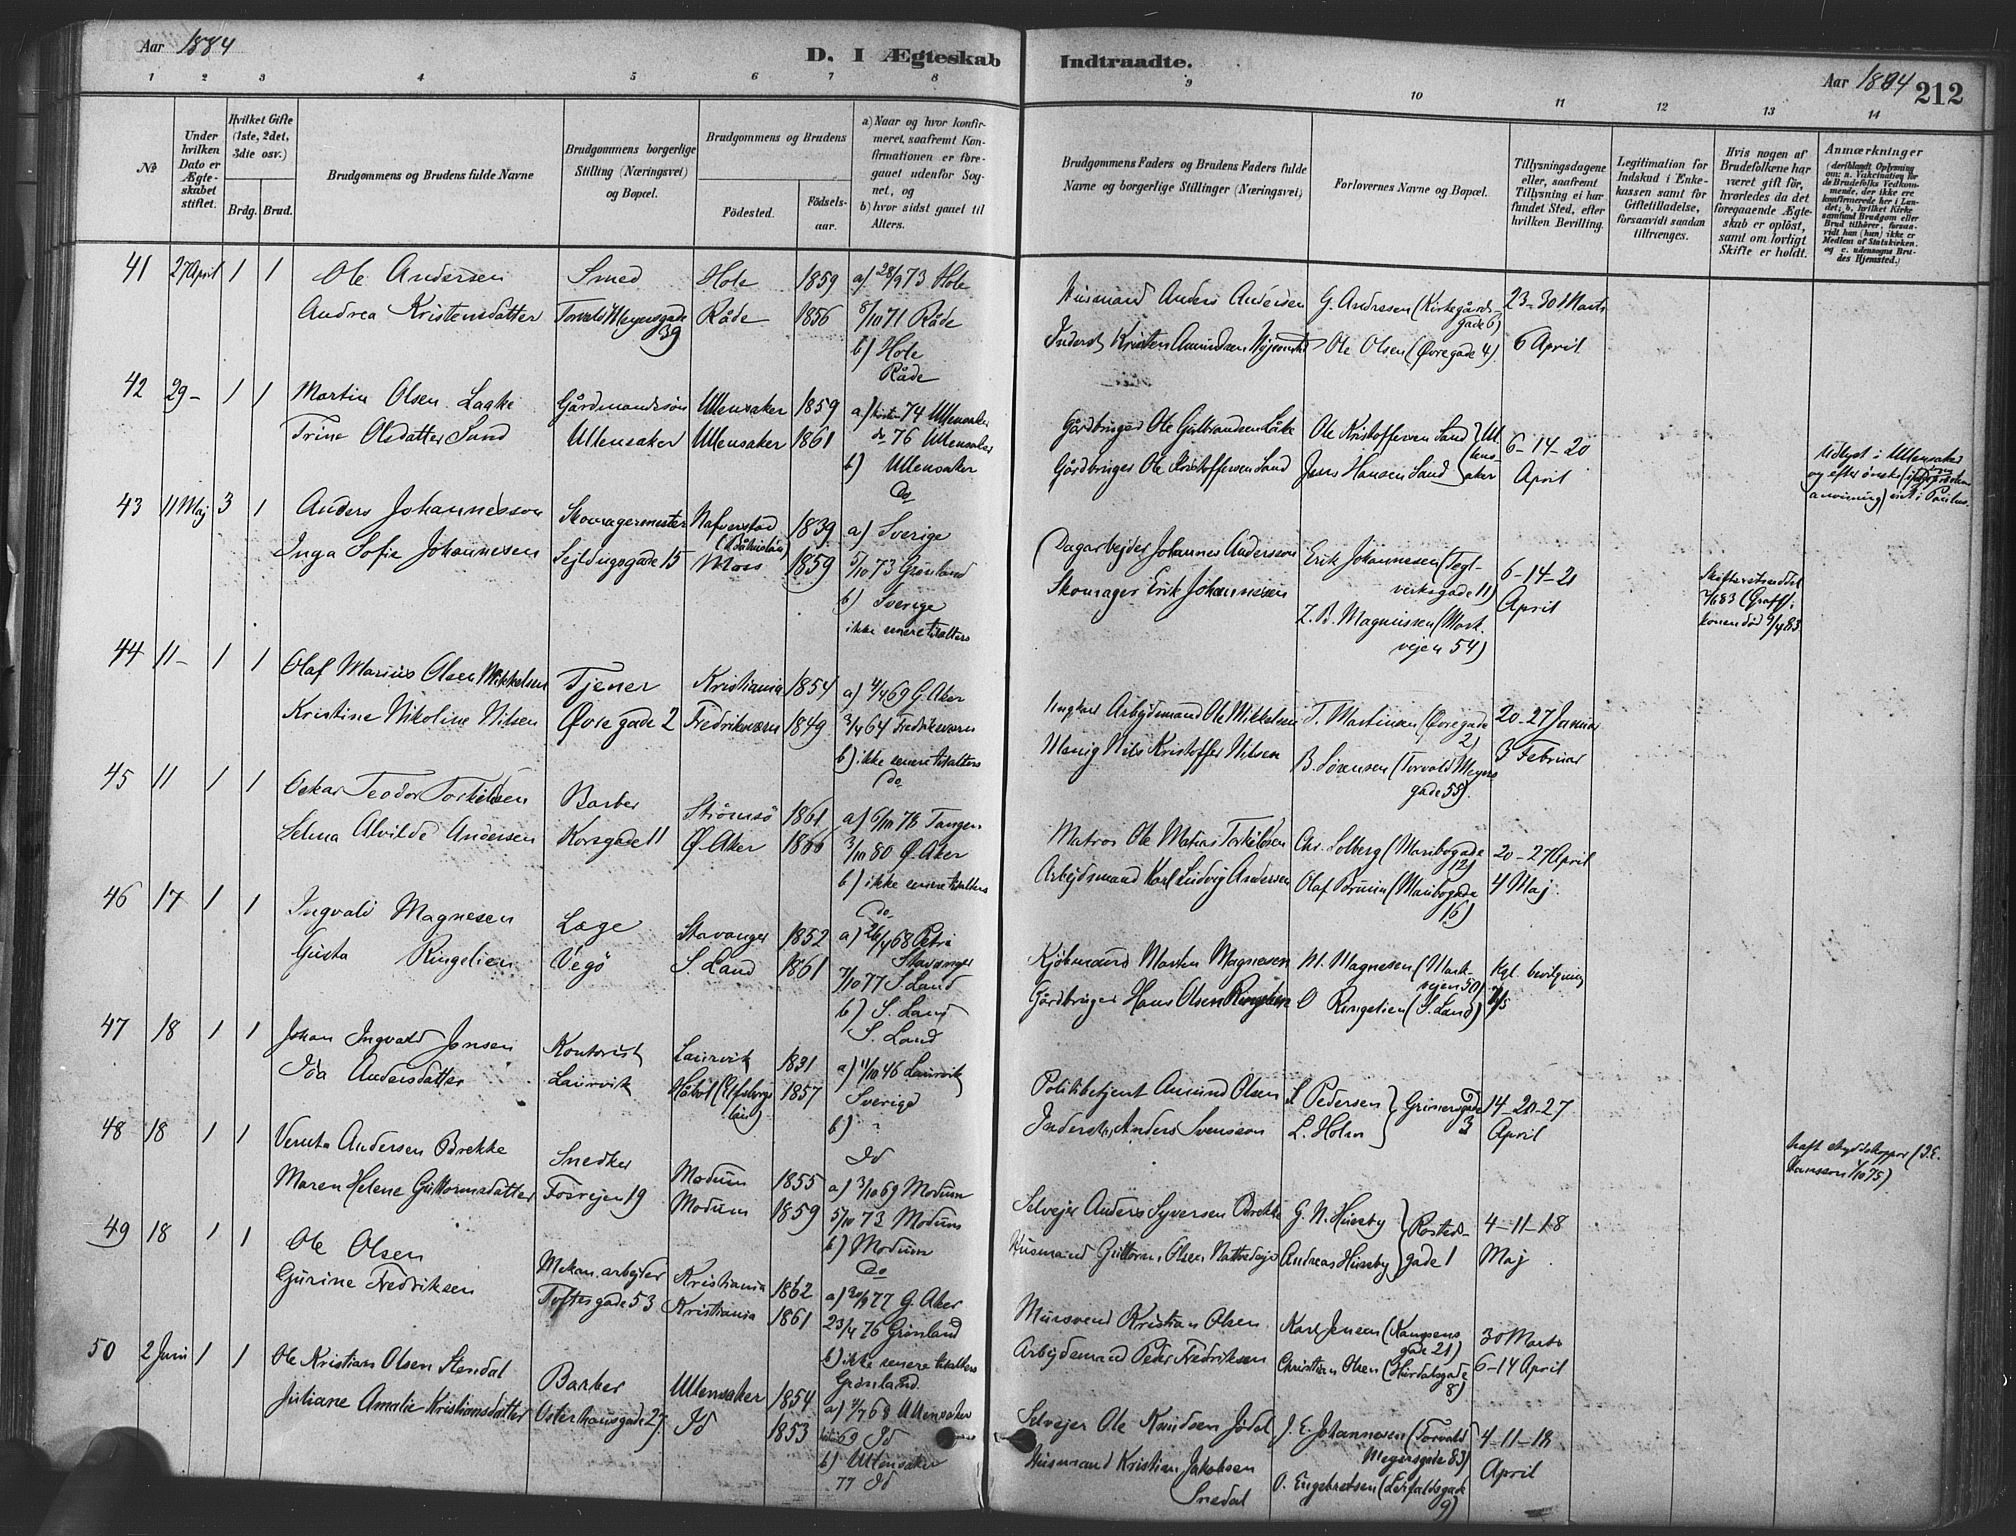 Aar 1884
D. I Ægteskab Indtraadte.
Aar 1884 212
1 2 3 4 5 6 7 8 9 10 11 12 13 14
№
Under hvilken Dato er Ægteskabet stiftet.
Hvilket Gifte (1ste, 2det, 3die osv.)
Brdg. Brud.
Brudgommens og Brudens fulde Navne
Brudgommens borgerlige Stilling (Næringsvei) og Bopæl.
Brudgommens og Brudens
Fødested.
Fødselsaar.
a) Naar og hvor konfirmeret, saafremt Konfirmationen er foregaaet udenfor Sognet, og
b) hvor sidst gaaet til Alters.
Brudgommens Faders og Brudens Faders fulde Navne og borgerlige Stillinger (Næringsvei)
Forlovernes Navne og Bopæl.
Tillysningsdagene eller, saafremt Tillysning ei har fundet Sted, efter hvilken Bevilling.
Legitimation for Indskud i Enkekassen samt for Giftetilladelse, forsaavidt saadan tiltrænges.
Hvis nogen af Brudefolkene har været gift før, hvorledes da det foregaaende Ægteskab er opløst, samt om lovligt Skifte er holdt.
Anmærkninger
(deriblandt Oplysning om: a. Vakcination for de Brudefolks Vedkommende, der ikke ere konfirmerede her i Landet; b. hvilket Kirkesamfund Brudgom eller Brud tilhører, forsaavidt han (hun) ikke er Medlem af Statskirken, og c. udensogns Brudes Hjemsted.)
41 27 April 1 1 Ole Andersen Smed Hole 1859 a) 28/9 73 Hole
Husmand Anders Andersen G. Andresen (Kirkegårdsgade 6) 23-30 Marts
Andrea Kristensdatter Torvald Meyersgade 39 Råde 1856 8/10 71 Råde
b) Hole
Råde
Inderst Kristen Amundsen Ole Olsen (Øvregade 4) 6 April
42 29- 1 1 Martin Olsen Laake Gårdmandssøn Ullensaker 1859 a) høsten 74 Ullensaker
Gårdbruger Ole Gulbrandsen Låke Ole Kristoffersen Sand Ullensaker 6-14-20
Trine Olsdatter Sand Ullensaker Ullensaker 1861 do 76 Ullensaker
b) Ullensaker
Do
Gårdbruger Ole Kristoffersen Sand Jens Hansen Sand April
Udlyst i Ullensaker
og efter ønske
43 11 Maj 3 1 Anders Johannesson Skomagermester Nafverstad 1839 a) Sverige
Dagarbejder Johannes Andersson Erik Johannessen (Teglverksgade 11) 6-14-21
Inga Sofie Johannesen Sejldugsgade 15 Moss 1859 5/10 73 Grønland
b) Sverige
ikke senere tilalters
Skomager Erik Johannesen Z. B. Magnussen (Markvejen 54) April
44 11- 1 1 Olaf Marius Olsen Mikkelsen Tjener Kristiania 1854 a) 4/4 69 G. Aker
Ungkarl Arbejdsmand Ole Mikkelsen T. Martinsen (Øvregade 2) 20-27 Januar
Kristine Nikoline Nilsen Øvregade 2 Fredriksværn 1849 3/4 64 Fredriksværn
b) ikke senere tilalters
Do
Nils Kristoffer Nilsen B. Sørensen (Torvald Meyers gade 55) 3 Februar
45 11 1 1 Oskar Teodor Torkildsen Barber Strømsø 1861 a) 6/10 78 Tangen
Matros Ole Matias Torkildsen Chr. Solberg (Maribogade 12) 20-27 April
Selma Alvilde Andersen Korsgade 11 Ø. Aker 1866 3/10 80 Ø. Aker
b) ikke senere tilalters
Do
Arbejdsmand Karl Ludvig Andersen Olaf Bruun (Maribogade 16) 4 Maj
46 17 1 1 Ingvald Magnesen Læge Stavanger 1852 a) 26/4 68 Petri
Stavanger
Kjøbmand Morten Magnesen M. Magnesen (Markvejen 50) Kgl. bevilgning
Gusta Ringelien Vegø S. Land 1861 7/10 77 S. Land
b) S. Land
S. Land
Gårdbruger Hans Olsen Ringelien O Ringelien (S. Land)
47 18 1 1 Johan Ingvald Jensen Kontorist Laurvik 1831 a) 11/10 46 Laurvik
Politibetjent Amund Olsen L Pedersen Grünersgade 3 14-20-27
Ida Andersdatter Laurvik Håbol (Elfsborgs län) 1857 Sverige
b)
Inderst Anders Svensson L. Holm April
48 18 1 1 Andersen Brekke Snedker Modum 1855 a) 3/10 69 Modum
Selvejer Anders Syversen Brekke G. N. Huseby Rostedsgade 1 4-11-18
Maren Helene Guttormsdatter Fossvejen 19 Modum 1859 5/10 73 Modum
b) Modum
Do
Husmand Guttorm Olsen Andreas Huseby Maj
49 18 1 1 Ole Olsen Mekan. arbejder Kristiania 1862 a) 30/9 77 G. Aker
Mursvend Kristian Olsen Karl Jensen (Kampens gade 21) 30 Marts
Gurine Fredriksen Toftesgade 53 Kristiania 1861 23/4 76 Grønland
b) ikke senere tilalters
Grønland
Arbejdsmand Peder Fredriksen Christian Olsen (Hurdalsgade 8) 6-14 April
50 2 Juni 1 1 Ole Kristian Olsen Stendal Barber Ullensaker 1854 a) 68 Ullensaker
Selvejer Ole Knudsen Jødal J. E. Johannesen (Torvald Meyersgade 83) 4-11-18
Juliane Amalie Kristiansdatter Osterhausgade 27 Id 1853 69 Id
b) Ullensaker
77 Id
Husmand Kristian Jakobsen Snedal O. Engebretsen (Leirfaldsgade 9) April